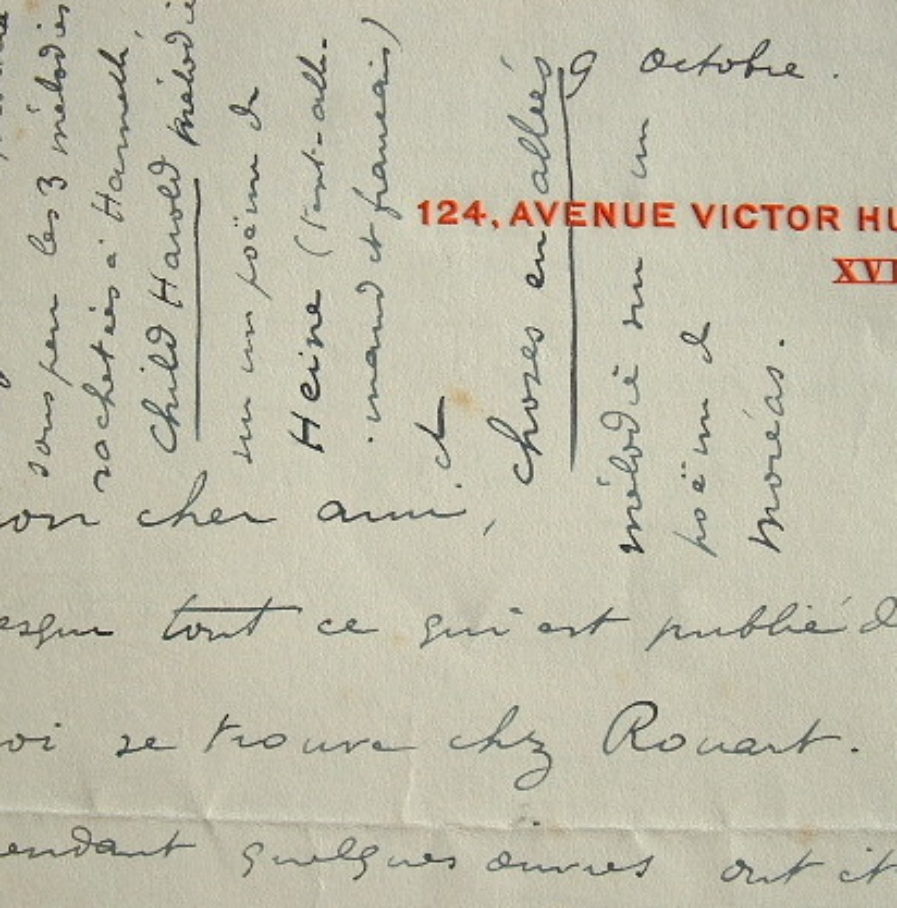 9 octobre.
124, AVENUE VICTOR HU
XVI
on cher ami,
esque tout ce qui est publié d
oi se trouve chez Rouart.
endant quelques œuvres ont ét
sous peu les 3 mélodies
rachetées à Hamelle,
Child Harold mélodie
sur un poëme de
Heine (text-alle-
mand et français)
et
choses en allées
mélodie sur un
poëme de
Moréas.